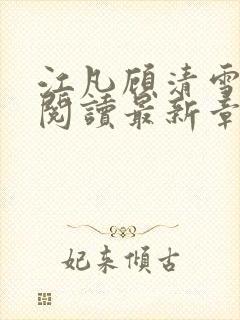 江凡顾清雪
阅讀最新章
妃来倾古